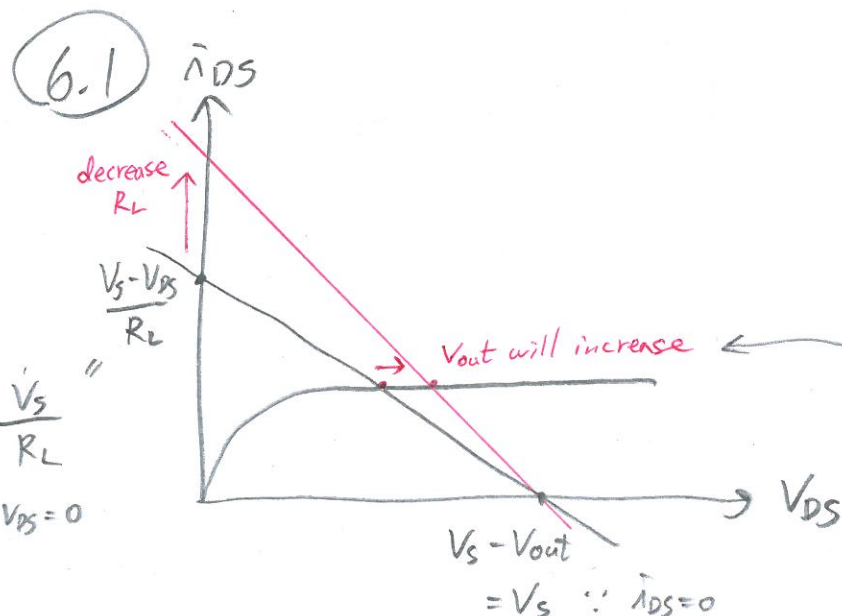 6.1
i_DS
decrease
R_L
V_S - V_DS
R_L
"
V_S
R_L
V_DS = 0
→ Vout will increase ←
V_DS
V_S - Vout
= V_S ∵ i_DS = 0